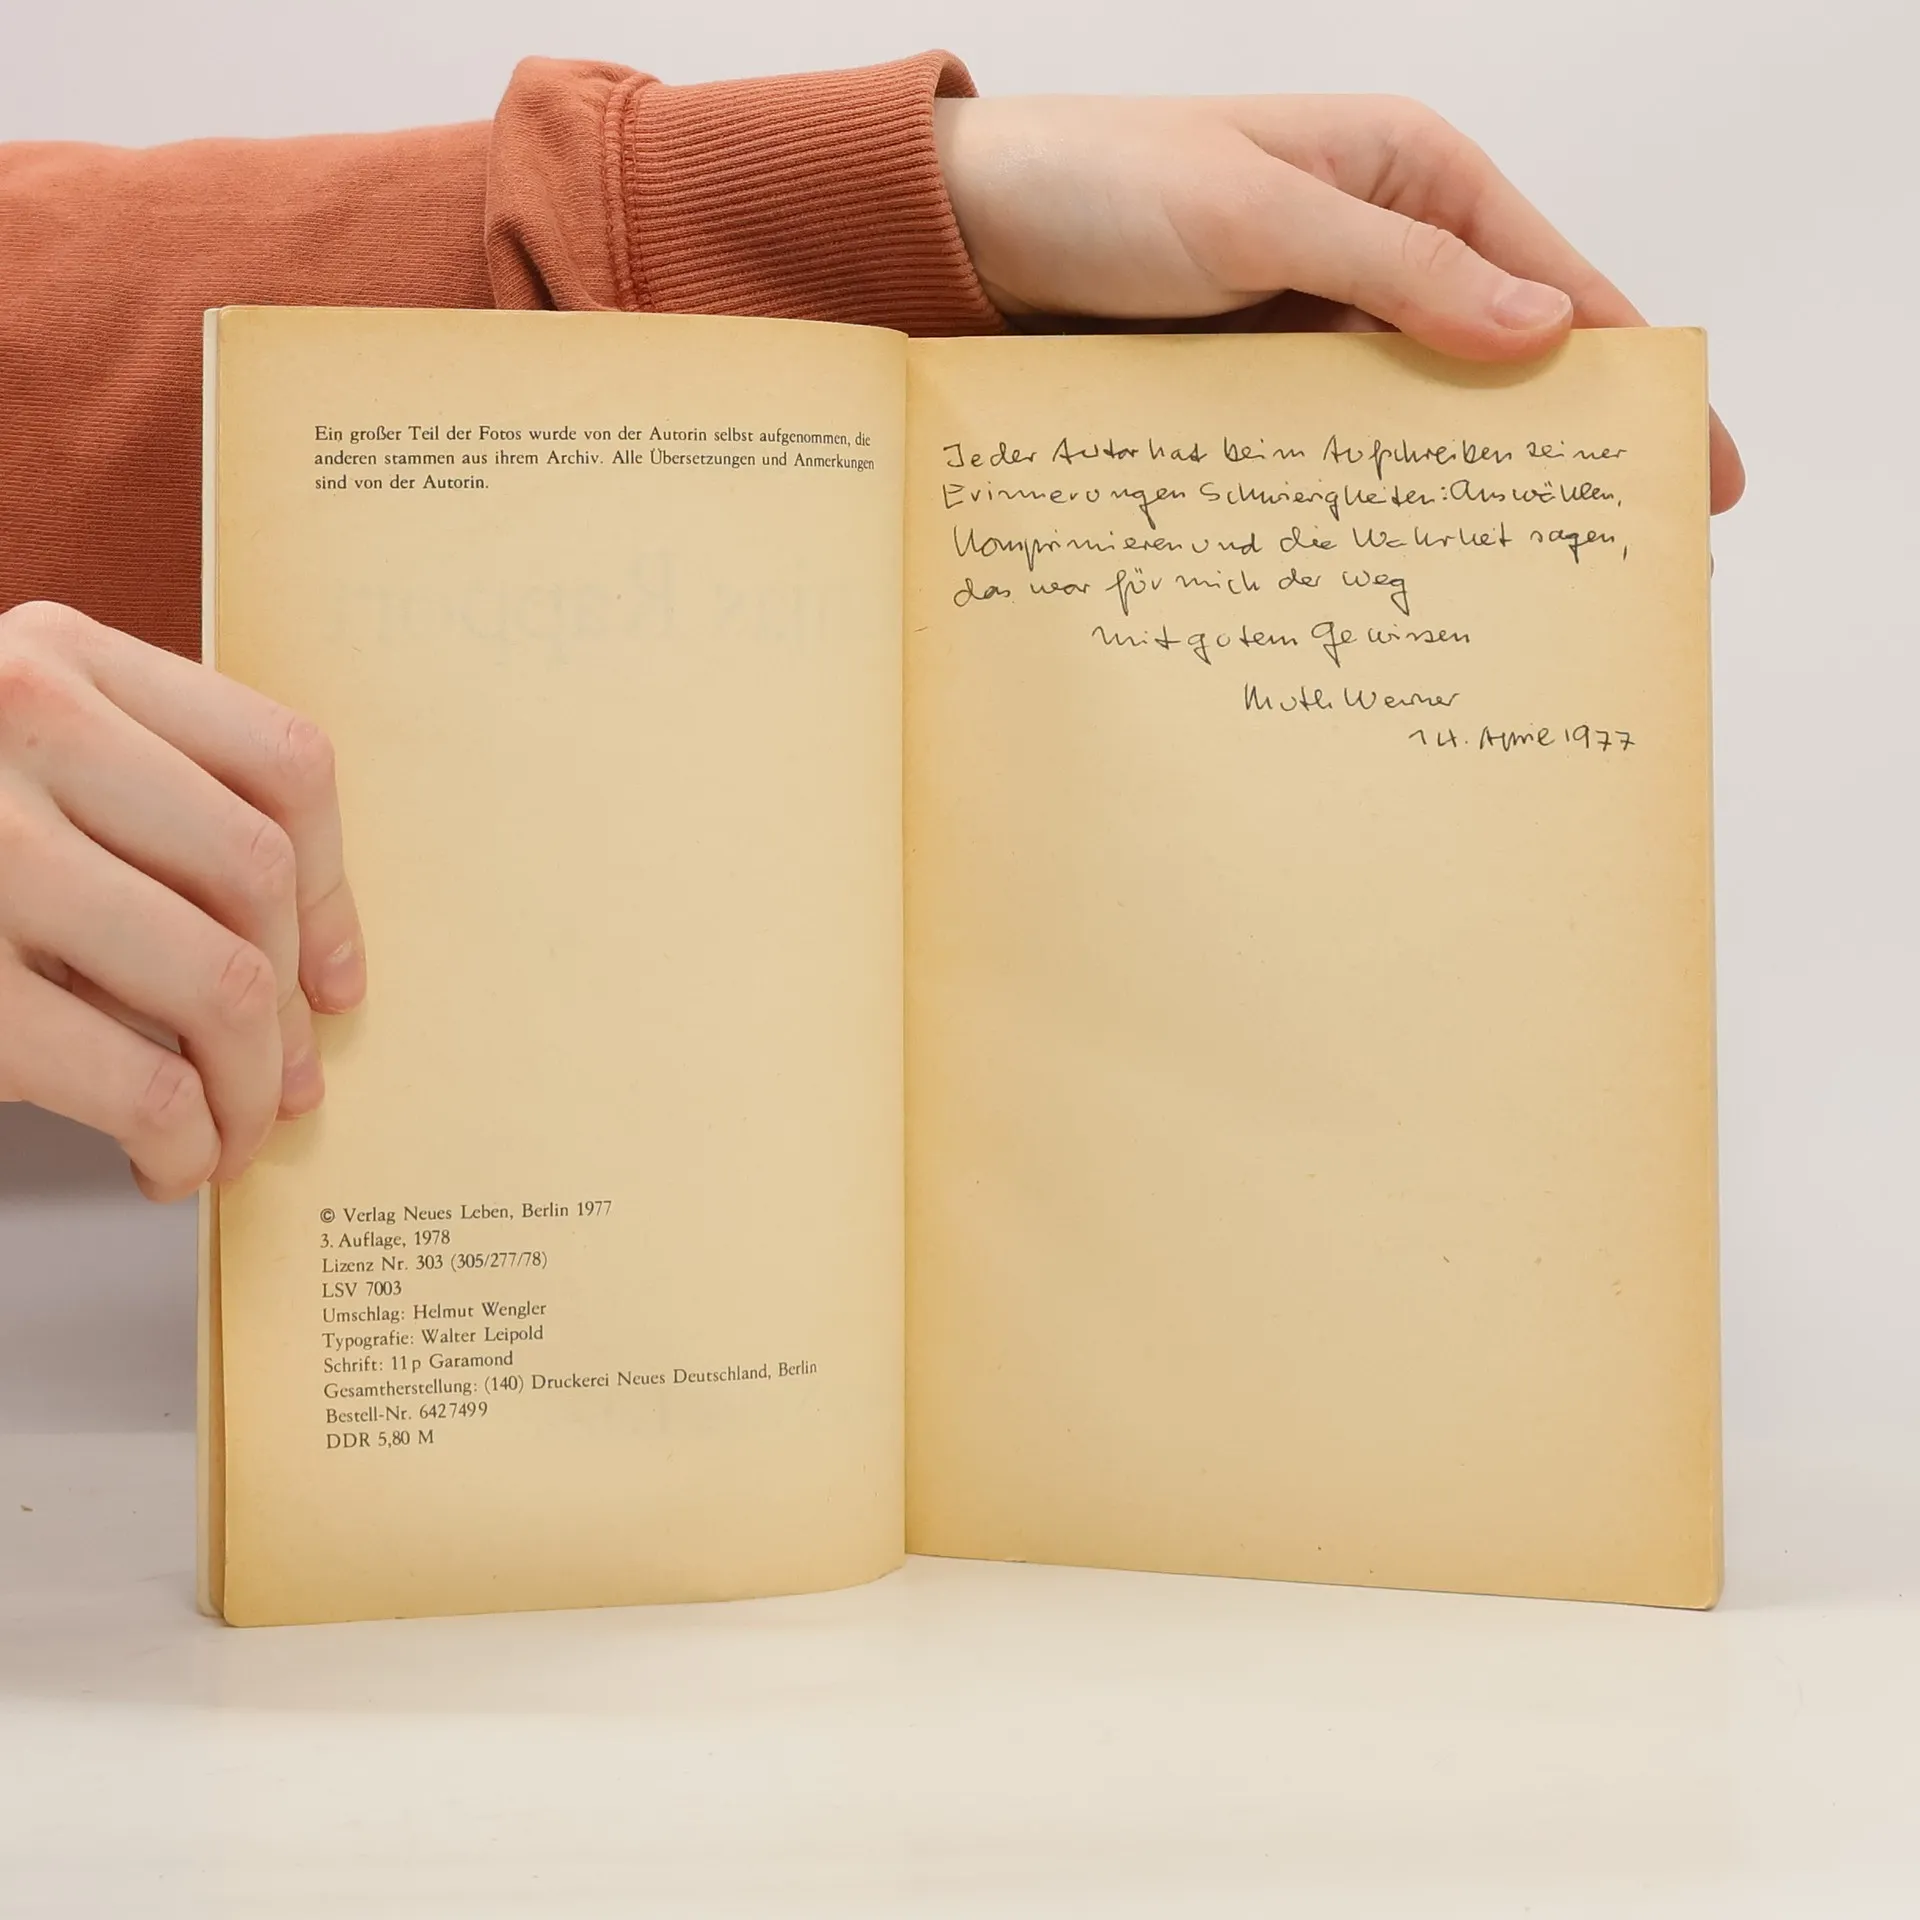 Ein großer Teil der Fotos wurde von der Autorin selbst aufgenommen, die
anderen stammen aus ihrem Archiv. Alle Übersetzungen und Anmerkungen
sind von der Autorin.
© Verlag Neues Leben, Berlin 1977
3. Auflage, 1978
Lizenz Nr. 303 (305/277/78)
LSV 7003
Umschlag: Helmut Wengler
Typografie: Walter Leipold
Schrift: 11 p Garamond
Gesamtherstellung: (140) Druckerei Neues Deutschland, Berlin
Bestell-Nr. 642 749 9
DDR 5,80 M
Jeder Autor hat beim Aufschreiben seiner
Erinnerungen Schwierigkeiten: Auswählen,
Komprimieren und die Wahrheit sagen,
das war für mich der Weg
mit gutem Gewissen
Ruth Werner
14. April 1977